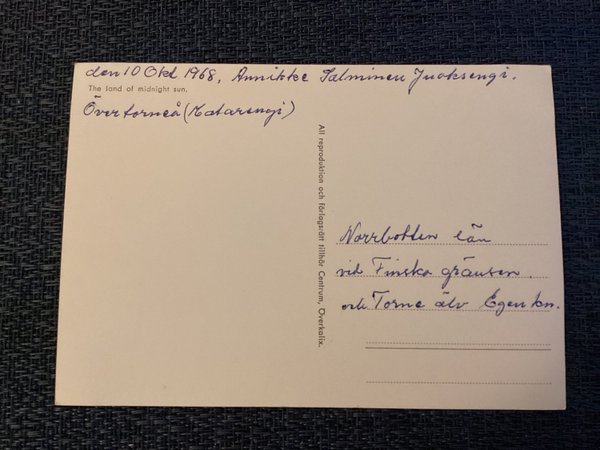 den 10 Okt 1968, Annikke Salminen Juoksengi.
The land of midnight sun.
Övertorneå (Matarengi)
All reproduktion och förlagsrätt tillhör Centrum, Överkalix.
Norrbotten län
vid Finska gränsen.
och Torne älv Egen kn.